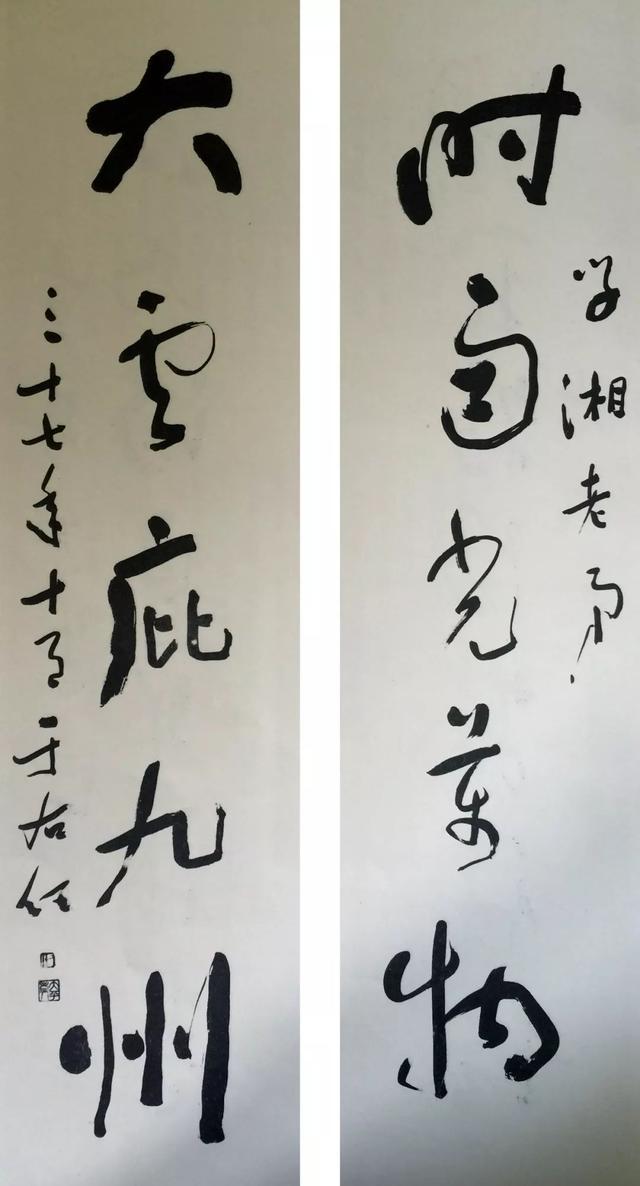 学湘老弟
时雨光万物
大云庇九州
三十七年十月于右任